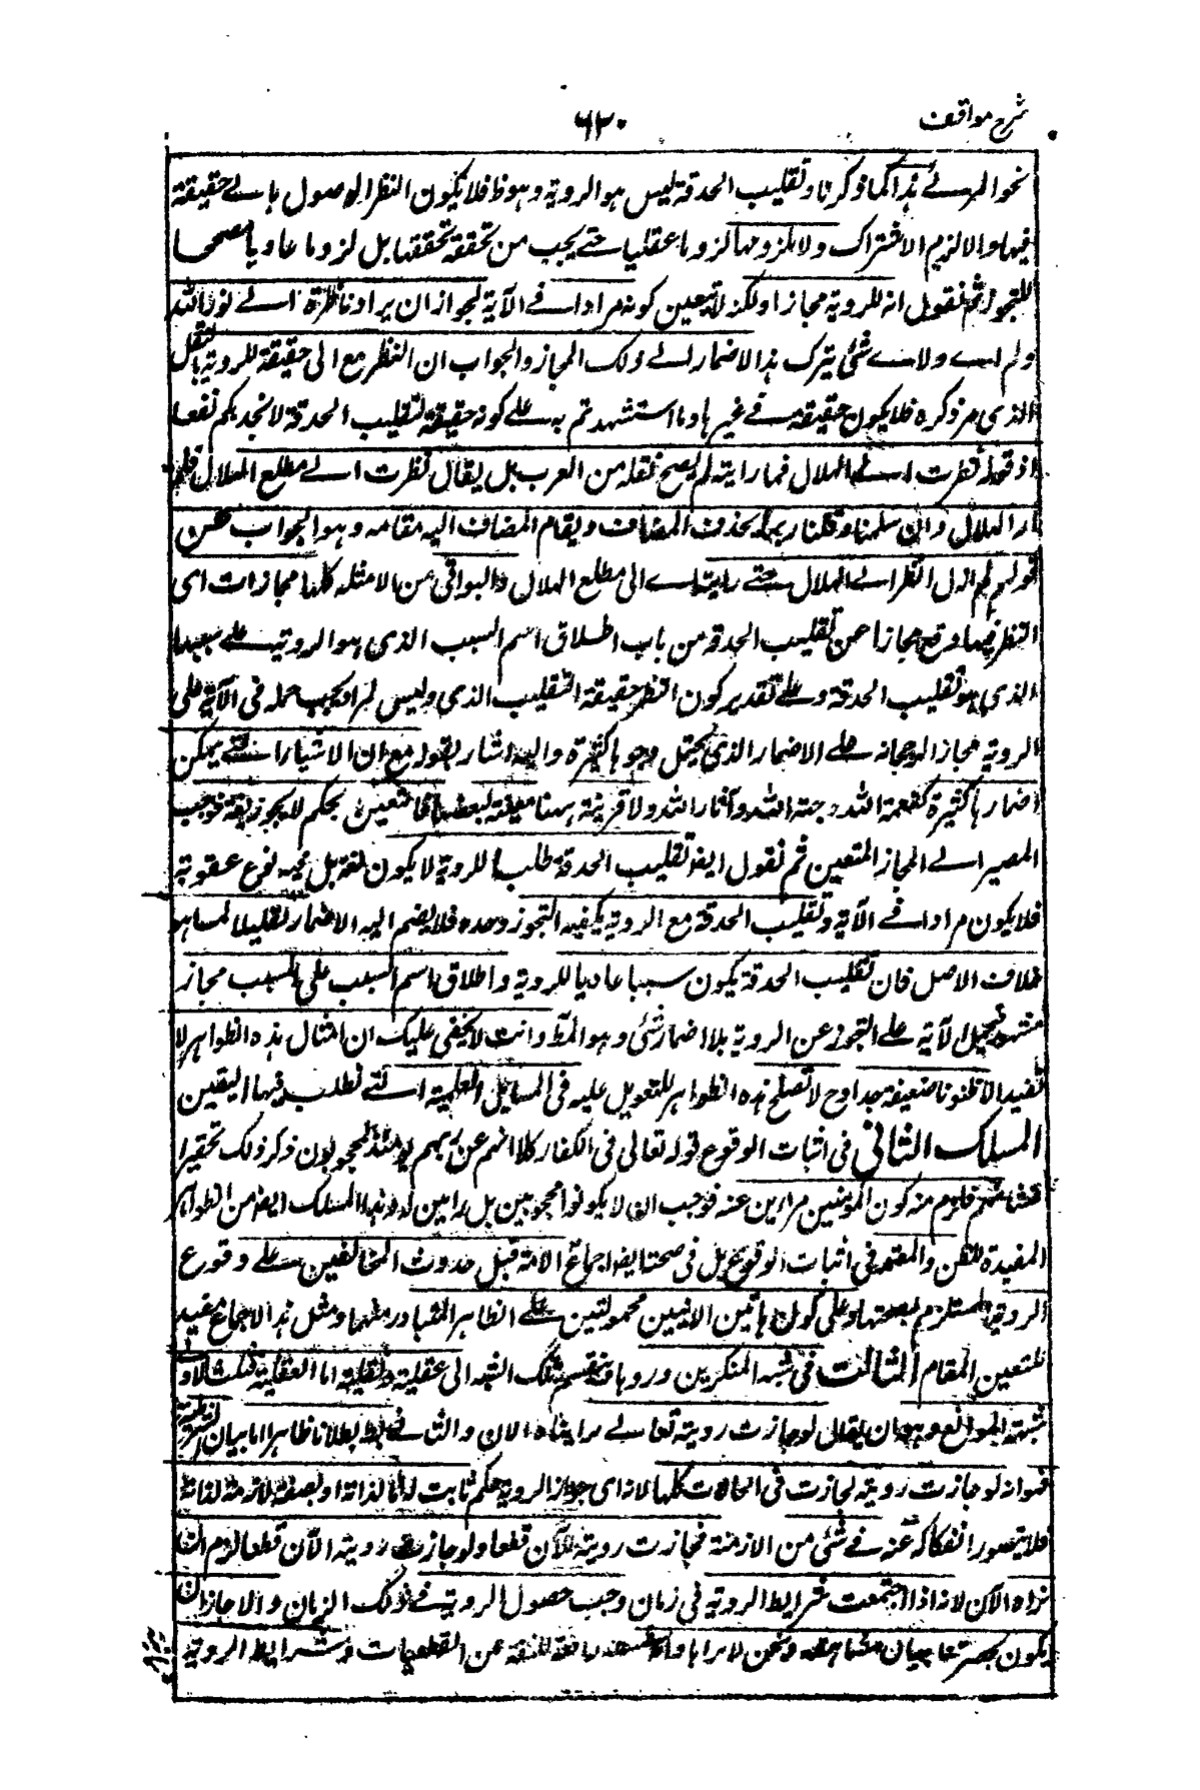 شرح مواقف
٦٣٠
نحو المرئي هذا كما ذكرنا وتقليب الحدقة ليس هو الروية وهو ظ فلا يكون النظر الموصول بالى حقيقة
فيها والا لزم الاشتراك ولا ملزومها لزوما عقليا حتى يجب من تحققه تحققها بل لزوما عاديا مصححا
للتجوز ثم نقول انه للروية مجازا ولكنه لا يتعين كونه مرادا في الآية لجواز ان يراد ناظرة الى نعم الله
ولم ولاي شئ يترك هذا الاضمار الى ذلك المجاز والجواب ان النظر مع الى حقيقة للروية بالنقل
الذى مر ذكره فلا يكون حقيقة في غيرها وما استشهدتم به على كونه حقيقة لتقليب الحدقة لا يجديكم نفعا
اذ قوله نظرت الى الهلال فما رايته لم يصح نقله من العرب بل يقال نظرت الى مطلع الهلال فلم
ار الهلال وان سلمنا وقلنا ربما يحذف المضاف ويقام المضاف اليه مقامه وهو الجواب عن
قولهم لم ازل انظر الى الهلال حتى رايته اي الى مطلع الهلال والبواقى من الامثلة كلها مجازات اى
النظر فيها وقع مجازا عن تقليب الحدقة من باب اطلاق اسم المسبب الذى هو الروية على سببها
الذى هو تقليب الحدقة وعلى تقدير كون النظر حقيقة التقليب الذى وليس مرادا يجب حمله فى الآية على
الروية مجازا لرجحانه على الاضمار الذى يحتمل وجوها كثيرة واليه اشار بقوله مع ان الاشياء التى يمكن
اضمارها كثيرة كنعمة الله وجهة الله وآثار الله ولا قرينة ههنا معينة لبعضها فالتعيين تحكم لا يجوز لغة فوجب
المصير الى المجاز المتعين ثم نقول ايضا تقليب الحدقة طلبا للروية لا يكون نعمة بل فيه نوع عقوبة
فلا يكون مرادا في الآية وتقليب الحدقة مع الروية يكفيه التجوز وحده فلا يضم اليه الاضمار تقليلا لما هو
خلاف الاصل فان تقليب الحدقة يكون سببا عاديا للروية واطلاق اسم السبب على المسبب مجاز
مشهور فيحمل الآية على التجوز عن الروية بلا اضمار شئ وهو المط وانت لا يخفى عليك ان امثال هذه الظواهر لا
تفيد الا ظنونا ضعيفة جدا وح لا تصلح هذه الظواهر للتعويل عليه فى المسائل العلمية التى تطلب فيها اليقين
المسلك الثانى فى اثبات الوقوع قوله تعالى فى الكفار كلا انهم عن ربهم يومئذ لمحجوبون ذكر ذلك تحقيرا
لشانهم فلزم منه كون المومنين مبرئين عنه فوجب ان لا يكونوا محجوبين بل رائين له وهذا المسلك ايضا من الظواهر
المفيدة للظن والمعتمد فى اثبات الوقوع بل فى صحته ايضا اجماع الامة قبل حدوث المخالفين على وقوع
الروية المستلزم لصحتها وعلى كون هاتين الآيتين محمولتين على الظاهر المتبادر منهما ومثل هذا الاجماع مفيد
لليقين المقام الثالث فى شبه المنكرين وردها وتنقسم تلك الشبه الى عقلية ونقلية اما العقلية فثلث الاولى
شبهة الموانع وهى ان يقال لو جازت رويته تعالى لرايناه الان والتالى بط بطلانا ظاهرا اما بيان الشرطية
فهو انه لو جازت رويته لجازت فى الحالات كلها لانه اى جواز الروية حكم ثابت له اما لذاته او لصفة لازمة لذاته
فلا يتصور انفكاكه عنه في شئ من الازمنة فجازت رويته الآن قطعا ولو جازت رويته الآن قطعا لزم ان
نراه الآن لانه اذا اجتمعت شرايط الروية فى زمان وجب حصول الروية في ذلك الزمان والا جاز ان
يكون بحضرتنا جبال شاهقة ونحن لا نراها وانه سفسطة رافعة للثقة عن القطعيات وشرايط الروية